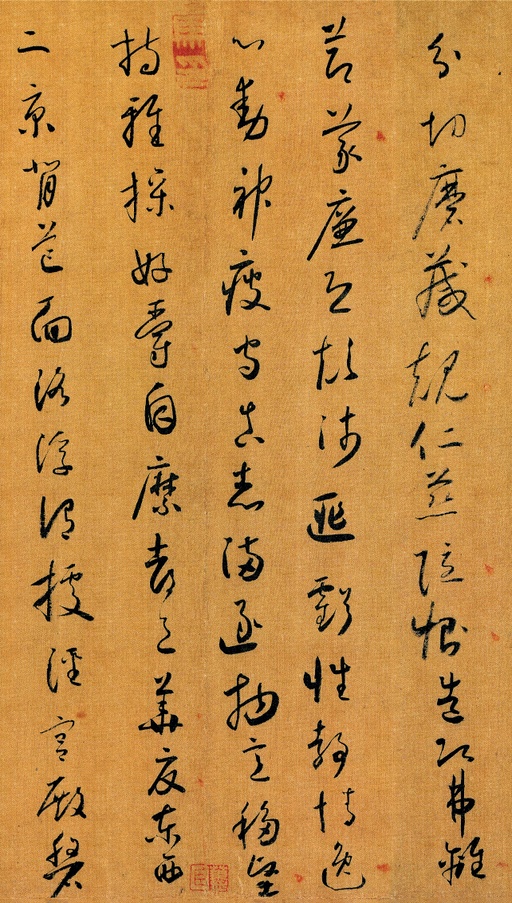 分切磨箴規仁慈隱惻造次弗離
節義廉退顛沛匪虧性靜情逸
心動神疲守真志滿逐物意移堅
持雅操好爵自縻都邑華夏東西
二京背芒面洛浮渭據涇宮殿盤